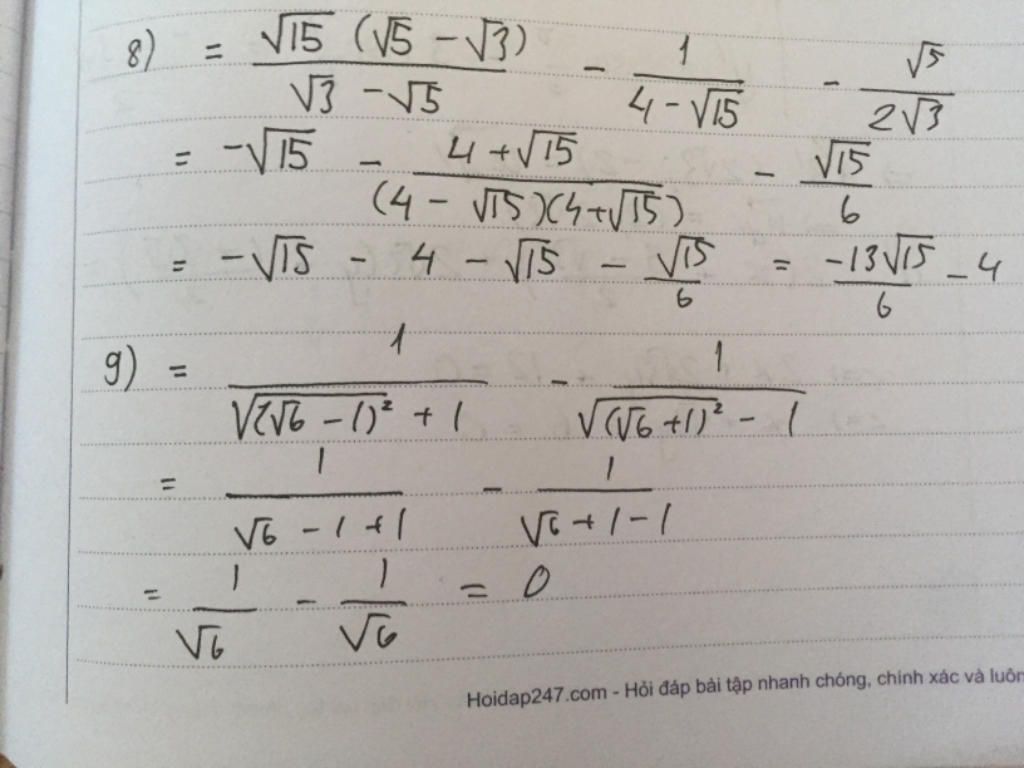 8) = √15 (√5 − √3) / (√3 − √5) − 1 / (4 − √15) − √5 / (2√3)
= −√15 − (4 + √15) / ((4 − √15)(4 + √15)) − √15 / 6
= −√15 − 4 − √15 − √15 / 6 = −13√15 / 6 − 4
9) = 1 / (√(√6 − 1)² + 1) − 1 / (√(√6 + 1)² − 1)
= 1 / (√6 − 1 + 1) − 1 / (√6 + 1 − 1)
= 1 / √6 − 1 / √6 = 0
Hoidap247.com - Hỏi đáp bài tập nhanh chóng, chính xác và luôn